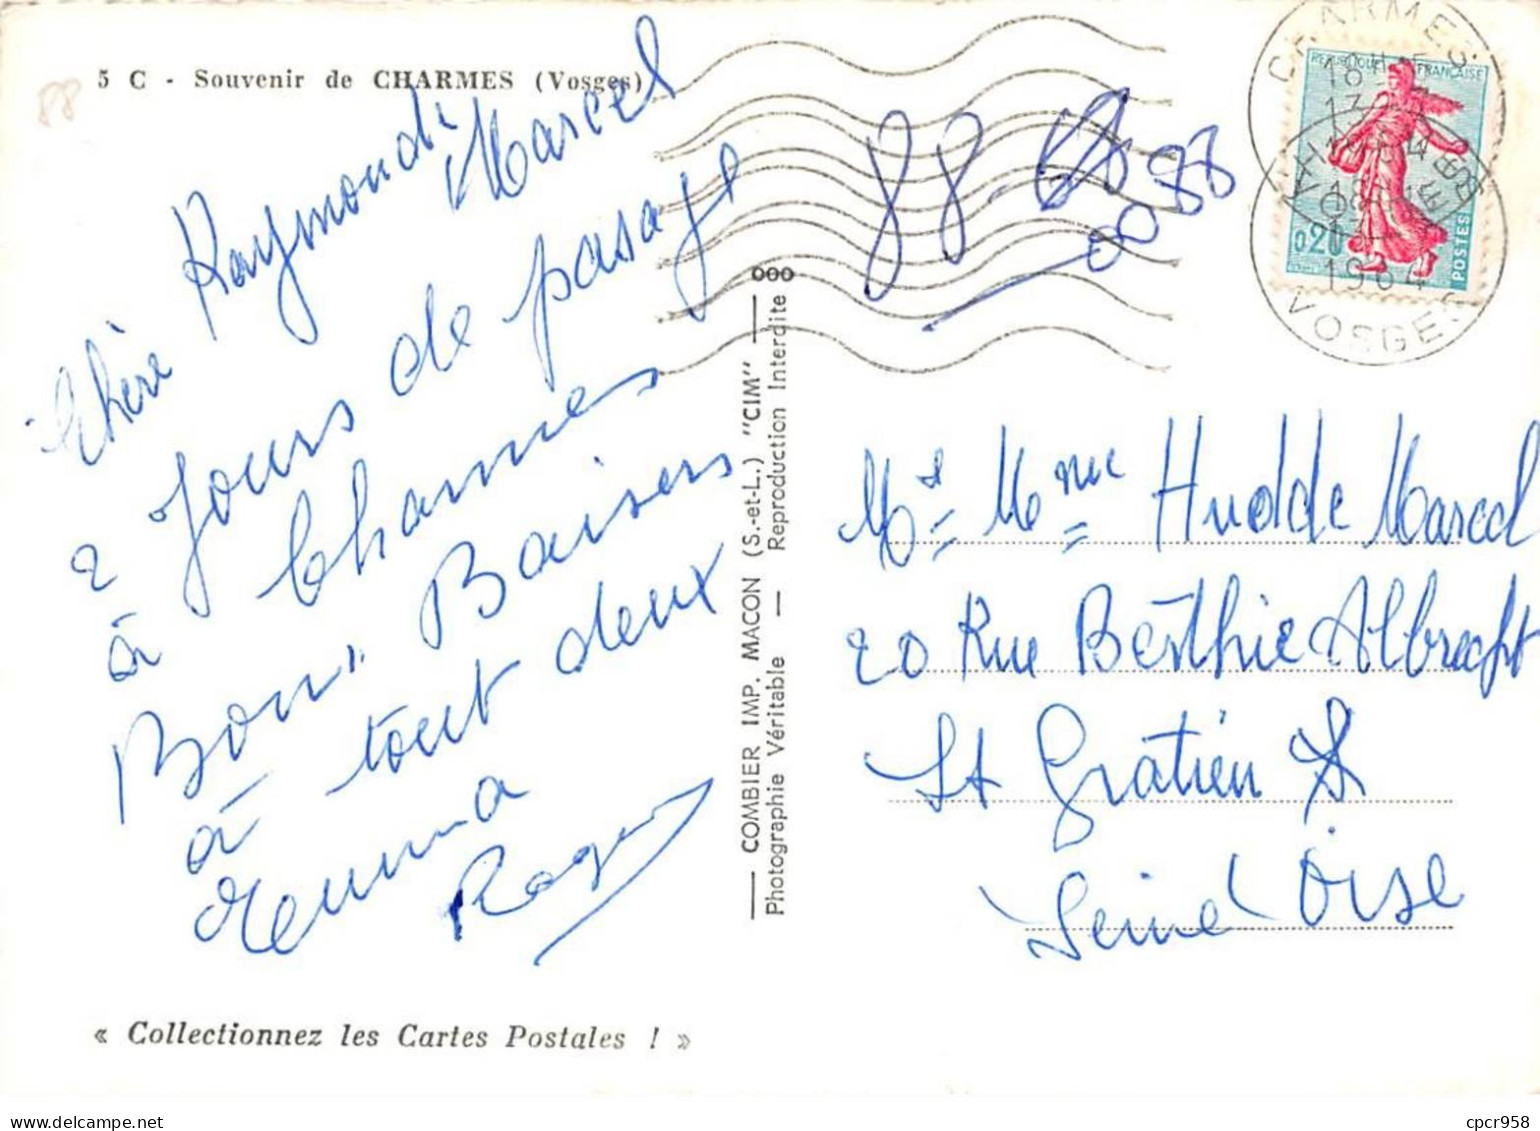 5 C - Souvenir de CHARMES (Vosges)
88
Chère Raymondi
Marcel
2 Jours de pasage
à Charmes
Bons Baisers
à tout deux
Roger
« Collectionnez les Cartes Postales ! »
COMBIER IMP. MACON (S.-et-L.) "CIM"
Photographie Véritable — Reproduction Interdite
88. 88
88
REPUBLIQUE FRANÇAISE
0,20
POSTES
CHARMES
18H
13
1964
VOSGES
Mr Mme Hudde Marcel
20 Rue Berthie Albrecht
St Gratien
Seine Oise
cpcr958